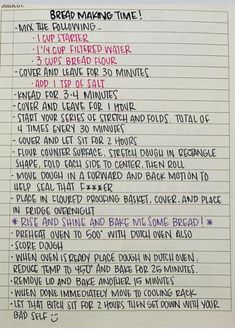 SUBJECT:
BREAD MAKING TIME!
- MIX THE FOLLOWING -
• 1 CUP STARTER
• 1 1/4 CUP FILTERED WATER
• 3 CUPS BREAD FLOUR
- COVER AND LEAVE FOR 30 MINUTES
- ADD 1 TSP OF SALT
- KNEAD FOR 3-4 MINUTES
- COVER AND LEAVE FOR 1 HOUR
- START YOUR SERIES OF STRETCH AND FOLDS. TOTAL OF
4 TIMES EVERY 30 MINUTES
- COVER AND LET SIT FOR 2 HOURS
- FLOUR COUNTER SURFACE. STRETCH DOUGH IN RECTANGLE
SHAPE, FOLD EACH SIDE TO CENTER, THEN ROLL
- MOVE DOUGH IN A FORWARD AND BACK MOTION TO
HELP SEAL THAT F***ER
- PLACE IN FLOURED PROOFING BASKET, COVER, AND PLACE
IN FRIDGE OVERNIGHT
* RISE AND SHINE AND BAKE ME SOME BREAD! *
- PREHEAT OVEN TO 500° WITH DUTCH OVEN ALSO
- SCORE DOUGH
- WHEN OVEN IS READY PLACE DOUGH IN DUTCH OVEN,
REDUCE TEMP TO 450° AND BAKE FOR 25 MINUTES.
- REMOVE LID AND BAKE ANOTHER 15 MINUTES
- WHEN DONE IMMEDIATELY MOVE TO COOLING RACK
- LET THAT BITCH SIT FOR 2 HOURS THEN GET DOWN WITH YOUR
BAD SELF